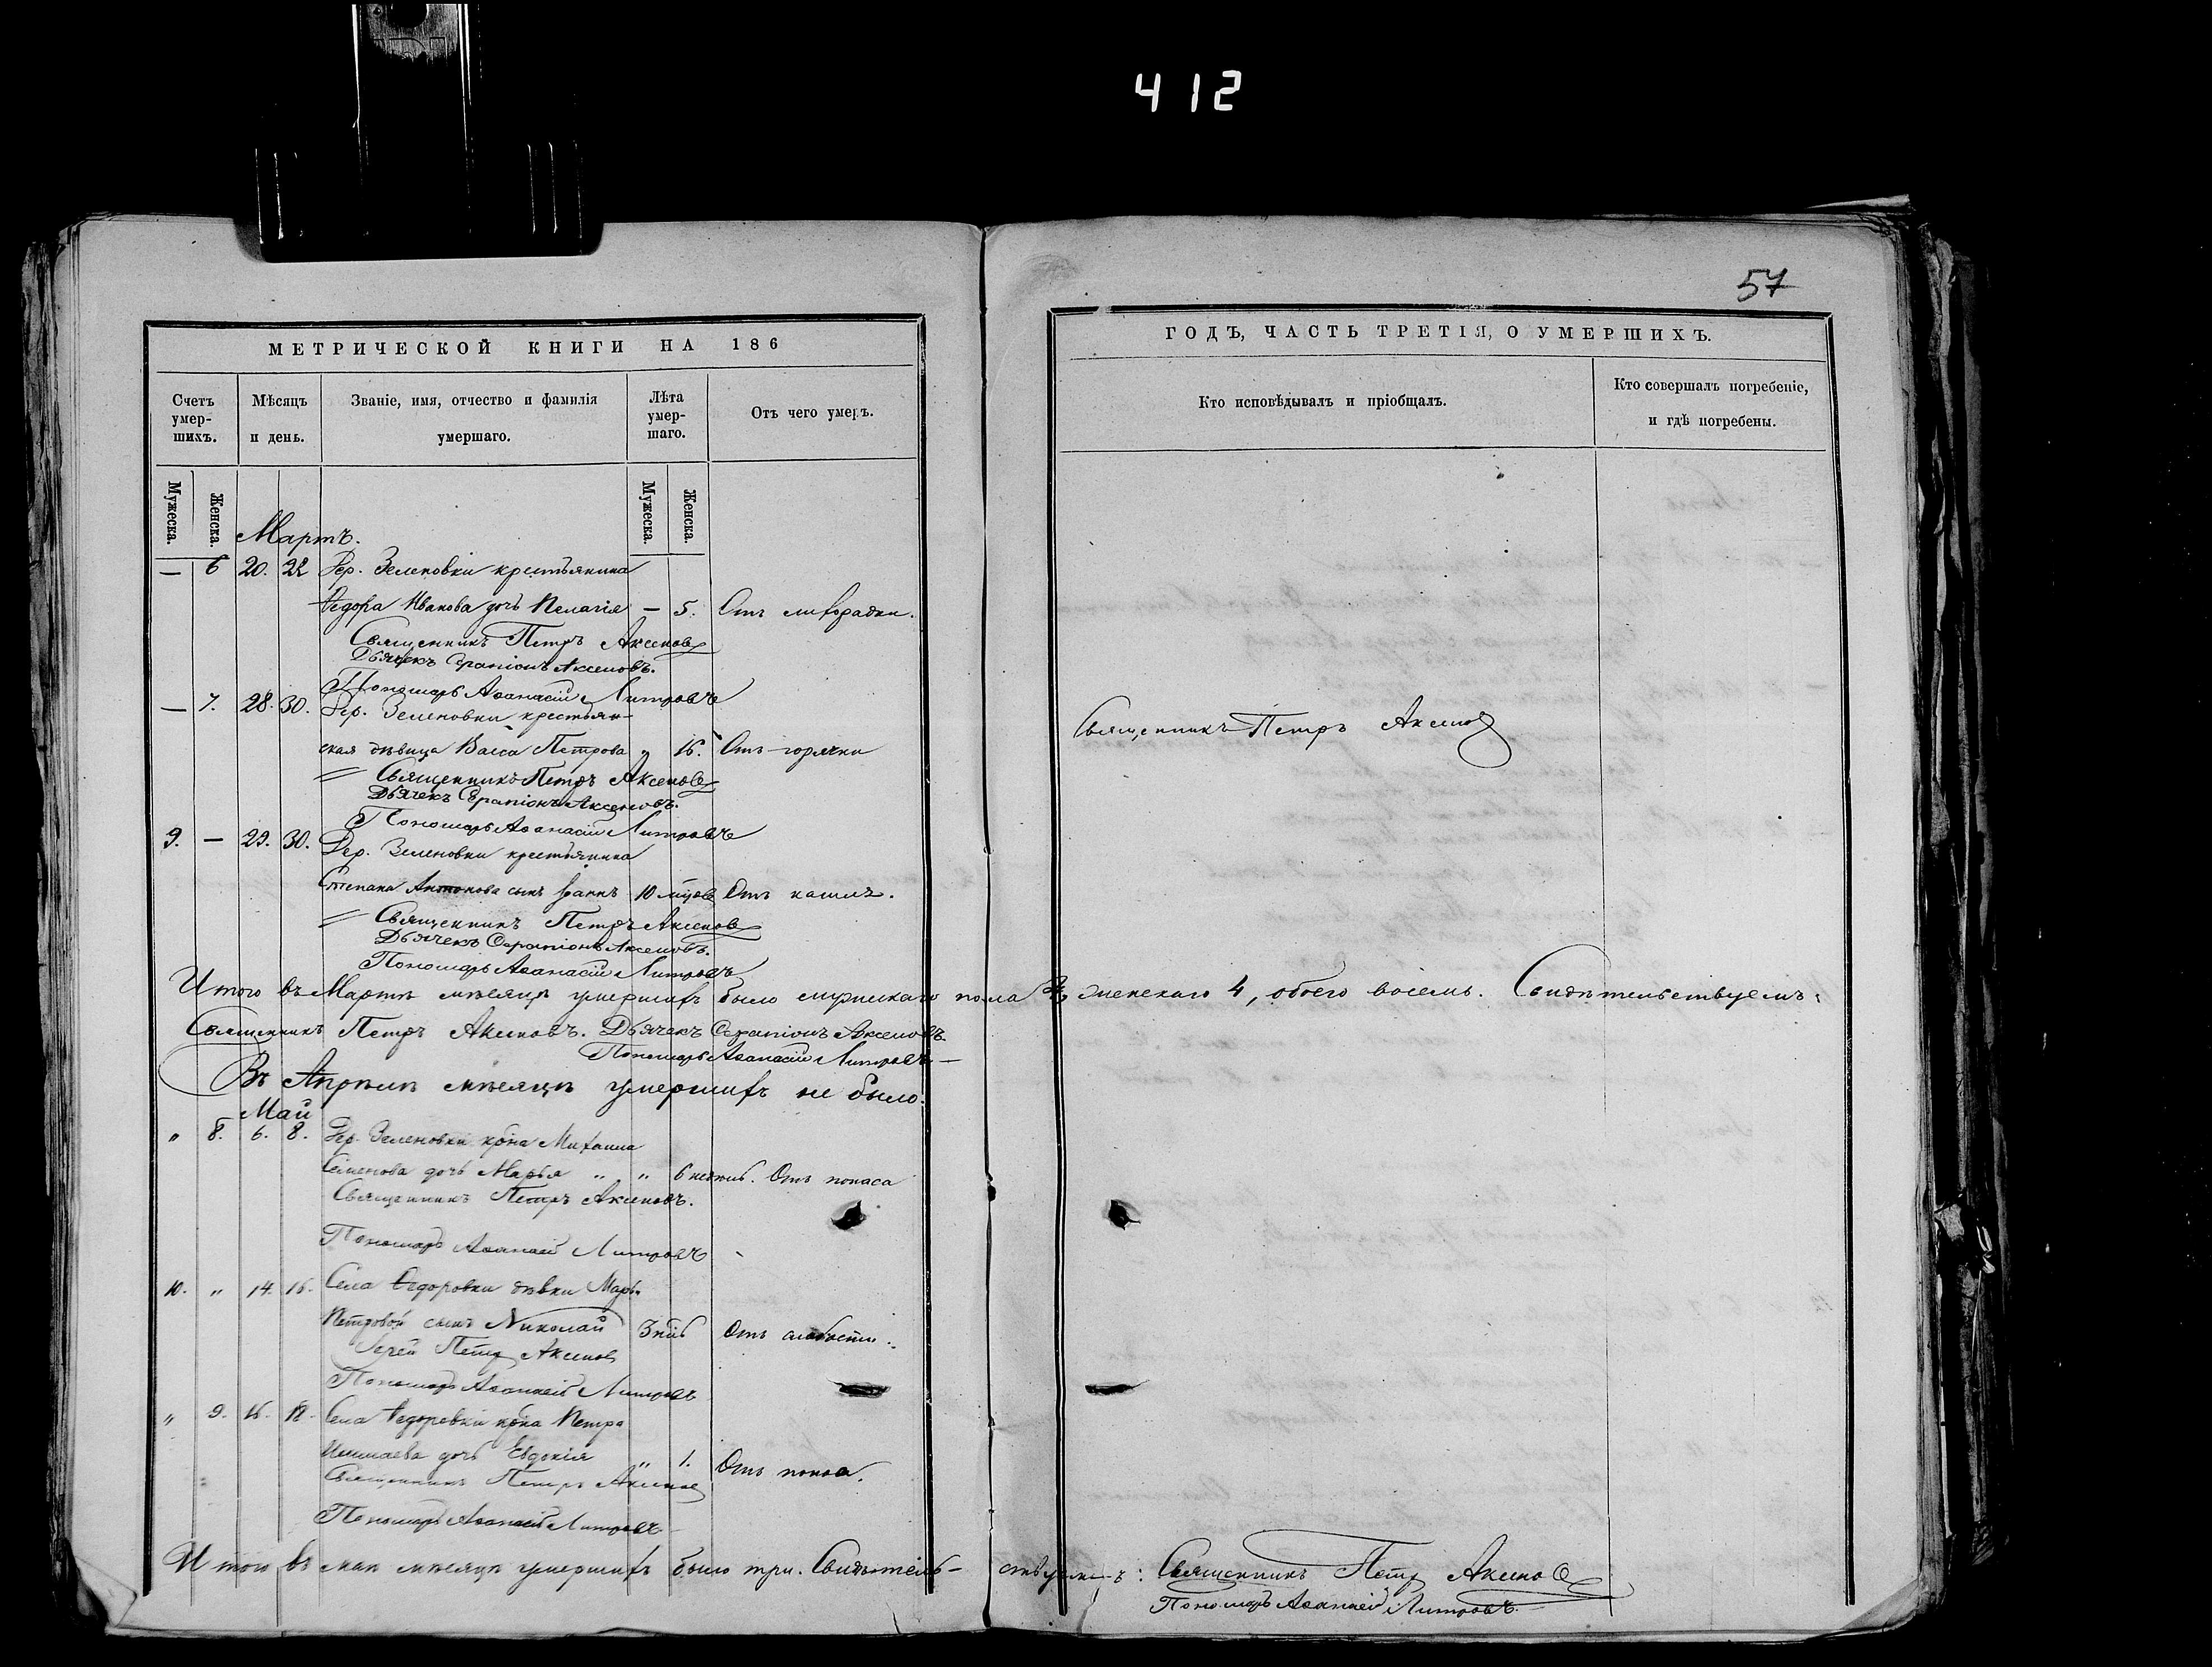 412
57
МЕТРИЧЕСКОЙ КНИГИ НА 186
ГОДЪ, ЧАСТЬ ТРЕТІЯ, О УМЕРШИХЪ.
Счетъ умер-шихъ.
Мѣсяцъ и день.
Званіе, имя, отчество и фамилія умершаго.
Лѣта умер-шаго.
Отъ чего умеръ.
Кто исповѣдывалъ и пріобщалъ.
Кто совершалъ погребеніе, и гдѣ погребены.
Мужеска. Женска. Мужеска. Женска.
Мартъ.
— 6 20. 22 Дер. Зеленовки крестьянина
Ѳедора Иванова дочь Пелагія — 5. Отъ лихорадки.
Священникъ Петръ Аксеновъ
Дьячекъ Серапіонъ Аксеновъ.
Пономарь Аѳанасій
— 7. 28. 30. Дер. Зеленовки крестьян-
ская дѣвица Васса Петрова 16. Отъ горячки
Священникъ Петръ Аксеновъ
Дьячекъ Серапіонъ Аксеновъ.
Пономарь Аѳанасій
Священникъ Петръ Аксеновъ
9. — 29. 30. Дер. Зеленовки крестьянина
Степана Антонова сынъ Іоаннъ 10 мцовъ Отъ кашля.
Священникъ Петръ Аксеновъ
Дьячекъ Серапіонъ Аксеновъ.
Пономарь Аѳанасій
Итого въ Мартѣ мѣсяцѣ умершихъ было мужескаго пола 4, женскаго 4, обоего восемь. Свидѣтельствуемъ:
Священникъ Петръ Аксеновъ. Дьячекъ Серапіонъ Аксеновъ.
Пономарь Аѳанасій
Въ Апрѣлѣ мѣсяцѣ умершихъ не было.
Май
" 8. 6. 8. Дер. Зеленовки крⷭ҇на Михаила
Семенова дочь Марья " " 6 Отъ поноса
Священникъ Петръ Аксеновъ.
Пономарь Аѳанасій
10. " 14. 16. Села Ѳедоровки дѣвки Марьи
Петровой сынъ Николай Отъ слабости.
Іерей Петръ Аксеновъ
Пономарь Аѳанасій
" 9. 16. 18. Села Ѳедоровки Петра
дочь Евдокія " 1. Отъ поноса.
Священникъ Петръ Аксеновъ
Пономарь Аѳанасій
Итого въ маѣ мѣсяцѣ умершихъ было три. Свидѣтель-ствуемъ: Священникъ Петръ Аксеновъ
Пономарь Аѳанасій